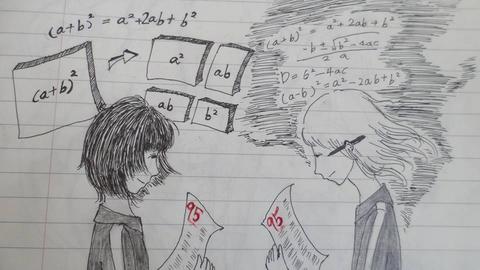 (a+b)² = a²+2ab+b²
(a+b)²
a²
ab
ab
b²
(a+b)² = a²+2ab+b²
-b ± √b²-4ac
2a
D = b²-4ac
(a-b)² = a²-2ab+b²
95
95